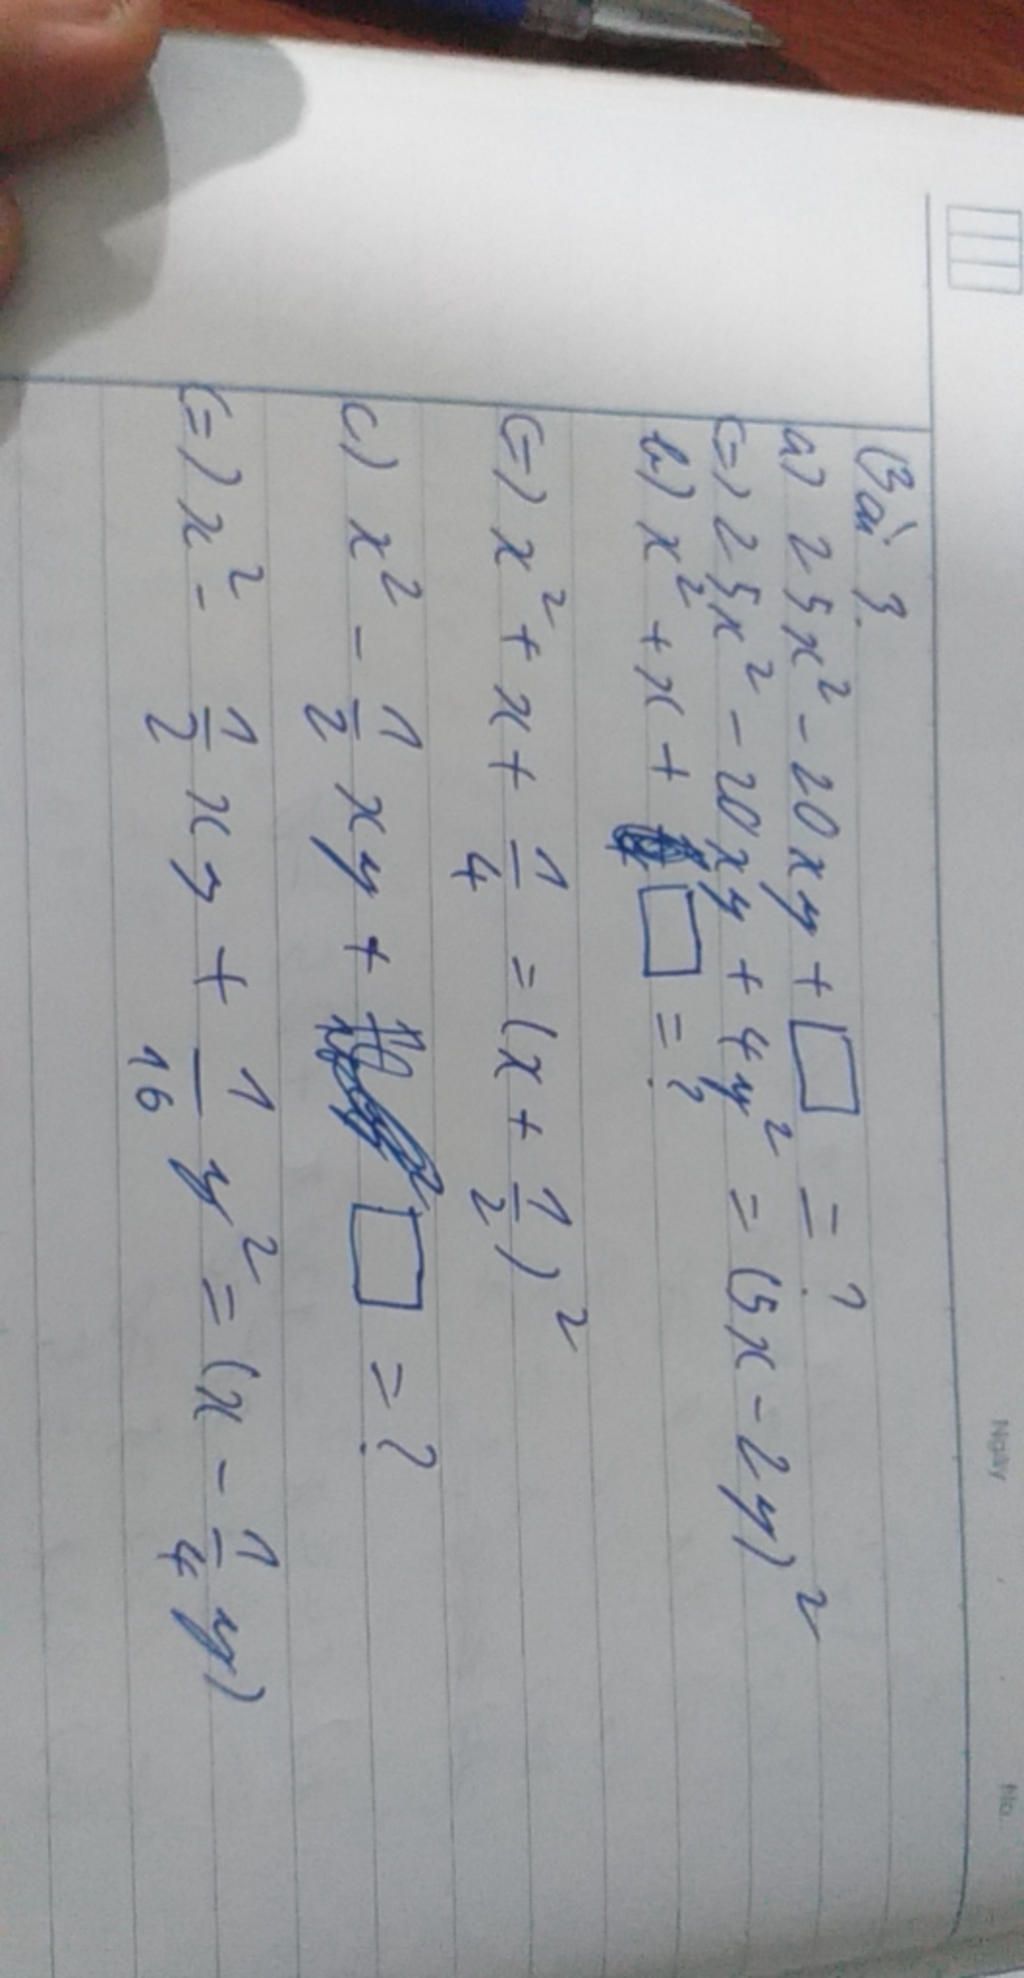 Ngày
No.
Bài 3.
a) 25x² - 20xy + □ = ?
(=) 25x² - 20xy + 4y² = (5x - 2y)²
b) x² + x + □ = ?
(=) x² + x + 1/4 = (x + 1/2)²
c) x² - 1/2 xy + □ = ?
(=) x² - 1/2 xy + 1/16 y² = (x - 1/4 y)